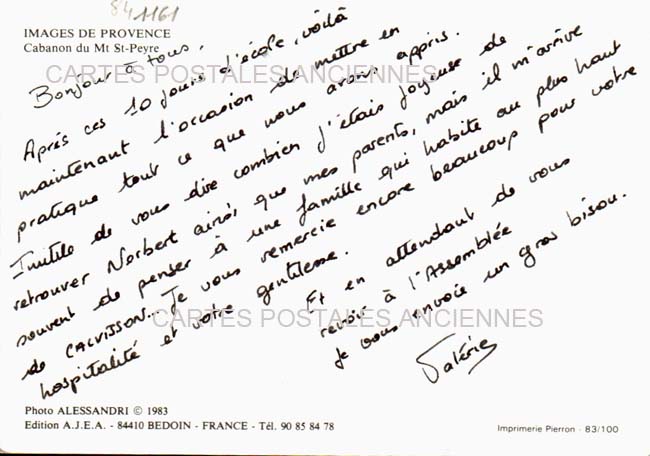 84 1161
IMAGES DE PROVENCE
Cabanon du Mt St-Peyre
Bonjour à tous,
Après ces 10 jours d'école, voilà
maintenant l'occasion de mettre en
pratique tout ce que nous avons appris.
Inutile de vous dire combien j'étais joyeuse de
retrouver Norbert ainsi que mes parents, mais il m'arrive
souvent de penser à une famille qui habite au plus haut
de CALVISSON. Je vous remercie encore beaucoup pour votre
hospitalité et votre gentillesse.
Et en attendant de vous
revoir à l'Assemblée
je vous envoie un gros bisou.
Valérie
CARTES POSTALES ANCIENNES
CARTES POSTALES ANCIENNES
Photo ALESSANDRI © 1983
Edition A.J.E.A. - 84410 BEDOIN - FRANCE - Tél. 90 85 84 78
Imprimerie Pierron - 83/100